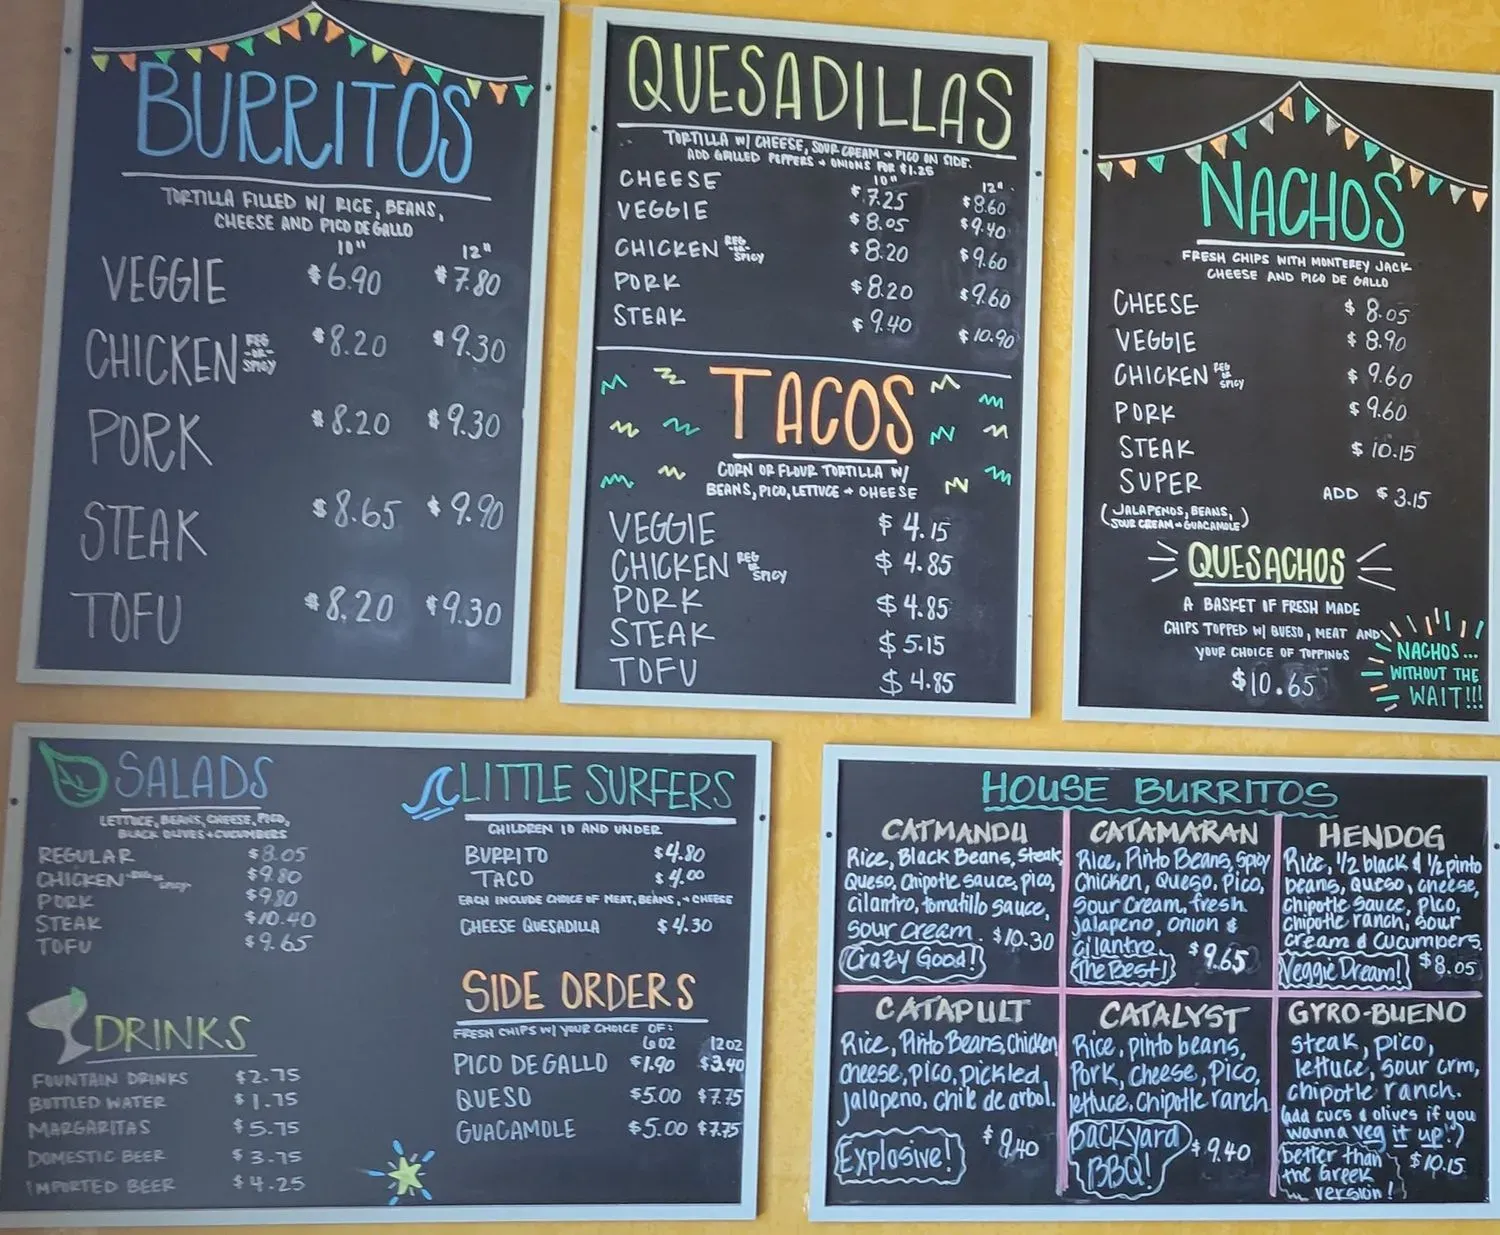 BURRITOS
TORTILLA FILLED W/ RICE, BEANS,
CHEESE AND PICO DE GALLO
10" 12"
VEGGIE $6.90 $7.80
CHICKEN REG -OR- SPICY $8.20 $9.30
PORK $8.20 $9.30
STEAK $8.65 $9.90
TOFU $8.20 $9.30
QUESADILLAS
TORTILLA W/ CHEESE, SOUR CREAM + PICO ON SIDE.
ADD GRILLED PEPPERS + ONIONS FOR $1.25
10" 12"
CHEESE $7.25 $8.60
VEGGIE $8.05 $9.40
CHICKEN REG -OR- SPICY $8.20 $9.60
PORK $8.20 $9.60
STEAK $9.40 $10.90
TACOS
CORN OR FLOUR TORTILLA W/
BEANS, PICO, LETTUCE + CHEESE
VEGGIE $4.15
CHICKEN REG OR SPICY $4.85
PORK $4.85
STEAK $5.15
TOFU $4.85
NACHOS
FRESH CHIPS WITH MONTEREY JACK
CHEESE AND PICO DE GALLO
CHEESE $8.05
VEGGIE $8.90
CHICKEN REG OR SPICY $9.60
PORK $9.60
STEAK $10.15
SUPER ADD $3.15
(JALAPENOS, BEANS,
SOUR CREAM + GUACAMOLE)
QUESACHOS
A BASKET IF FRESH MADE
CHIPS TOPPED W/ QUESO, MEAT AND
YOUR CHOICE OF TOPPINGS
$10.65
NACHOS...
WITHOUT THE
WAIT!!!
SALADS
LETTUCE, BEANS, CHEESE, PICO,
BLACK OLIVES + CUCUMBERS
REGULAR $8.05
CHICKEN REG OR SPICY $9.80
PORK $9.80
STEAK $10.40
TOFU $9.65
DRINKS
FOUNTAIN DRINKS $2.75
BOTTLED WATER $1.75
MARGARITAS $5.75
DOMESTIC BEER $3.75
IMPORTED BEER $4.25
LITTLE SURFERS
CHILDREN 10 AND UNDER
BURRITO $4.80
TACO $4.00
EACH INCLUDE CHOICE OF MEAT, BEANS, + CHEESE
CHEESE QUESADILLA $4.30
SIDE ORDERS
FRESH CHIPS W/ YOUR CHOICE OF:
6oz 12oz
PICO DE GALLO $1.90 $3.40
QUESO $5.00 $7.75
GUACAMOLE $5.00 $7.75
HOUSE BURRITOS
CATMANDU
Rice, Black Beans, Steak,
Queso, Chipotle sauce, pico,
cilantro, tomatillo sauce,
sour cream. $10.30
Crazy Good!
CATAMARAN
Rice, Pinto Beans, Spicy
Chicken, Queso, Pico,
Sour Cream, fresh
jalapeno, onion &
cilantro.
The Best! $9.65
HENDOG
Rice, 1/2 black & 1/2 pinto
beans, queso, cheese,
chipotle sauce, pico,
chipotle ranch, sour
cream & cucumbers.
Veggie Dream! $8.05
CATAPULT
Rice, Pinto Beans, Chicken,
cheese, pico, pickled
jalapeno, chile de arbol.
Explosive! $9.40
CATALYST
Rice, pinto beans,
Pork, cheese, pico,
lettuce, chipotle ranch
Backyard
BBQ! $9.40
GYRO-BUENO
steak, pico,
lettuce, sour crm,
chipotle ranch.
(add cucs & olives if you
wanna veg it up!)
better than
the Greek $10.15
version!